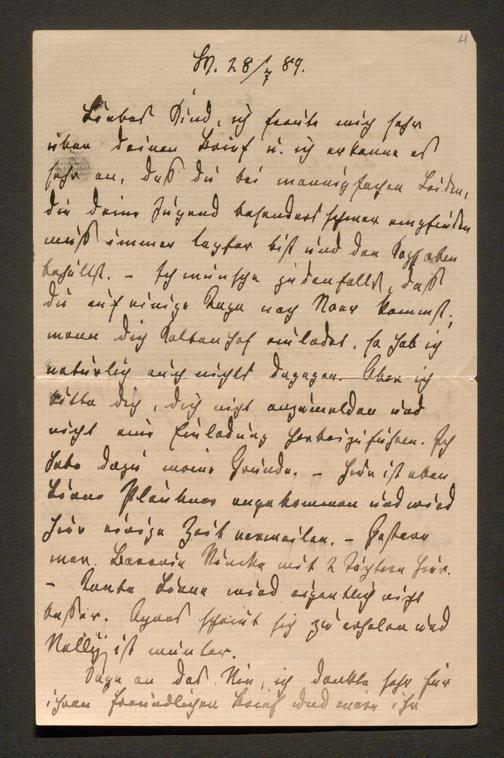 4
M. 28/7 89.
Liebes Kind, ich freute mich sehr
über deinen Brief u. ich erkenne es
sehr an, daß du bei mannigfachen Leiden,
die deine Jugend besonders schwer empfinden
muß immer tapfer bist und den Kopf oben
behältst. – Ich wünsche jedenfalls, daß
du auf einige Tage nach kommst;
wenn dich Kaltenhof einladet, so hab ich
natürlich auch nichts dagegen. Aber ich
bitte dich, dich nicht anzumelden und
nicht eine Einladung herbeizuführen. Ich
habe dazu meine Gründe. – Hier ist eben
angekommen und wird
hier einige Zeit verweilen. – Gestern
war Baronin mit 2 Töchtern hier.
– Tante wird eigentlich nicht
besser. Agnes scheint sich zu erholen und
Nelly ist munter.
Sage an das, ich dankte sehr für
ihren freundlichen Brief und wäre ihr